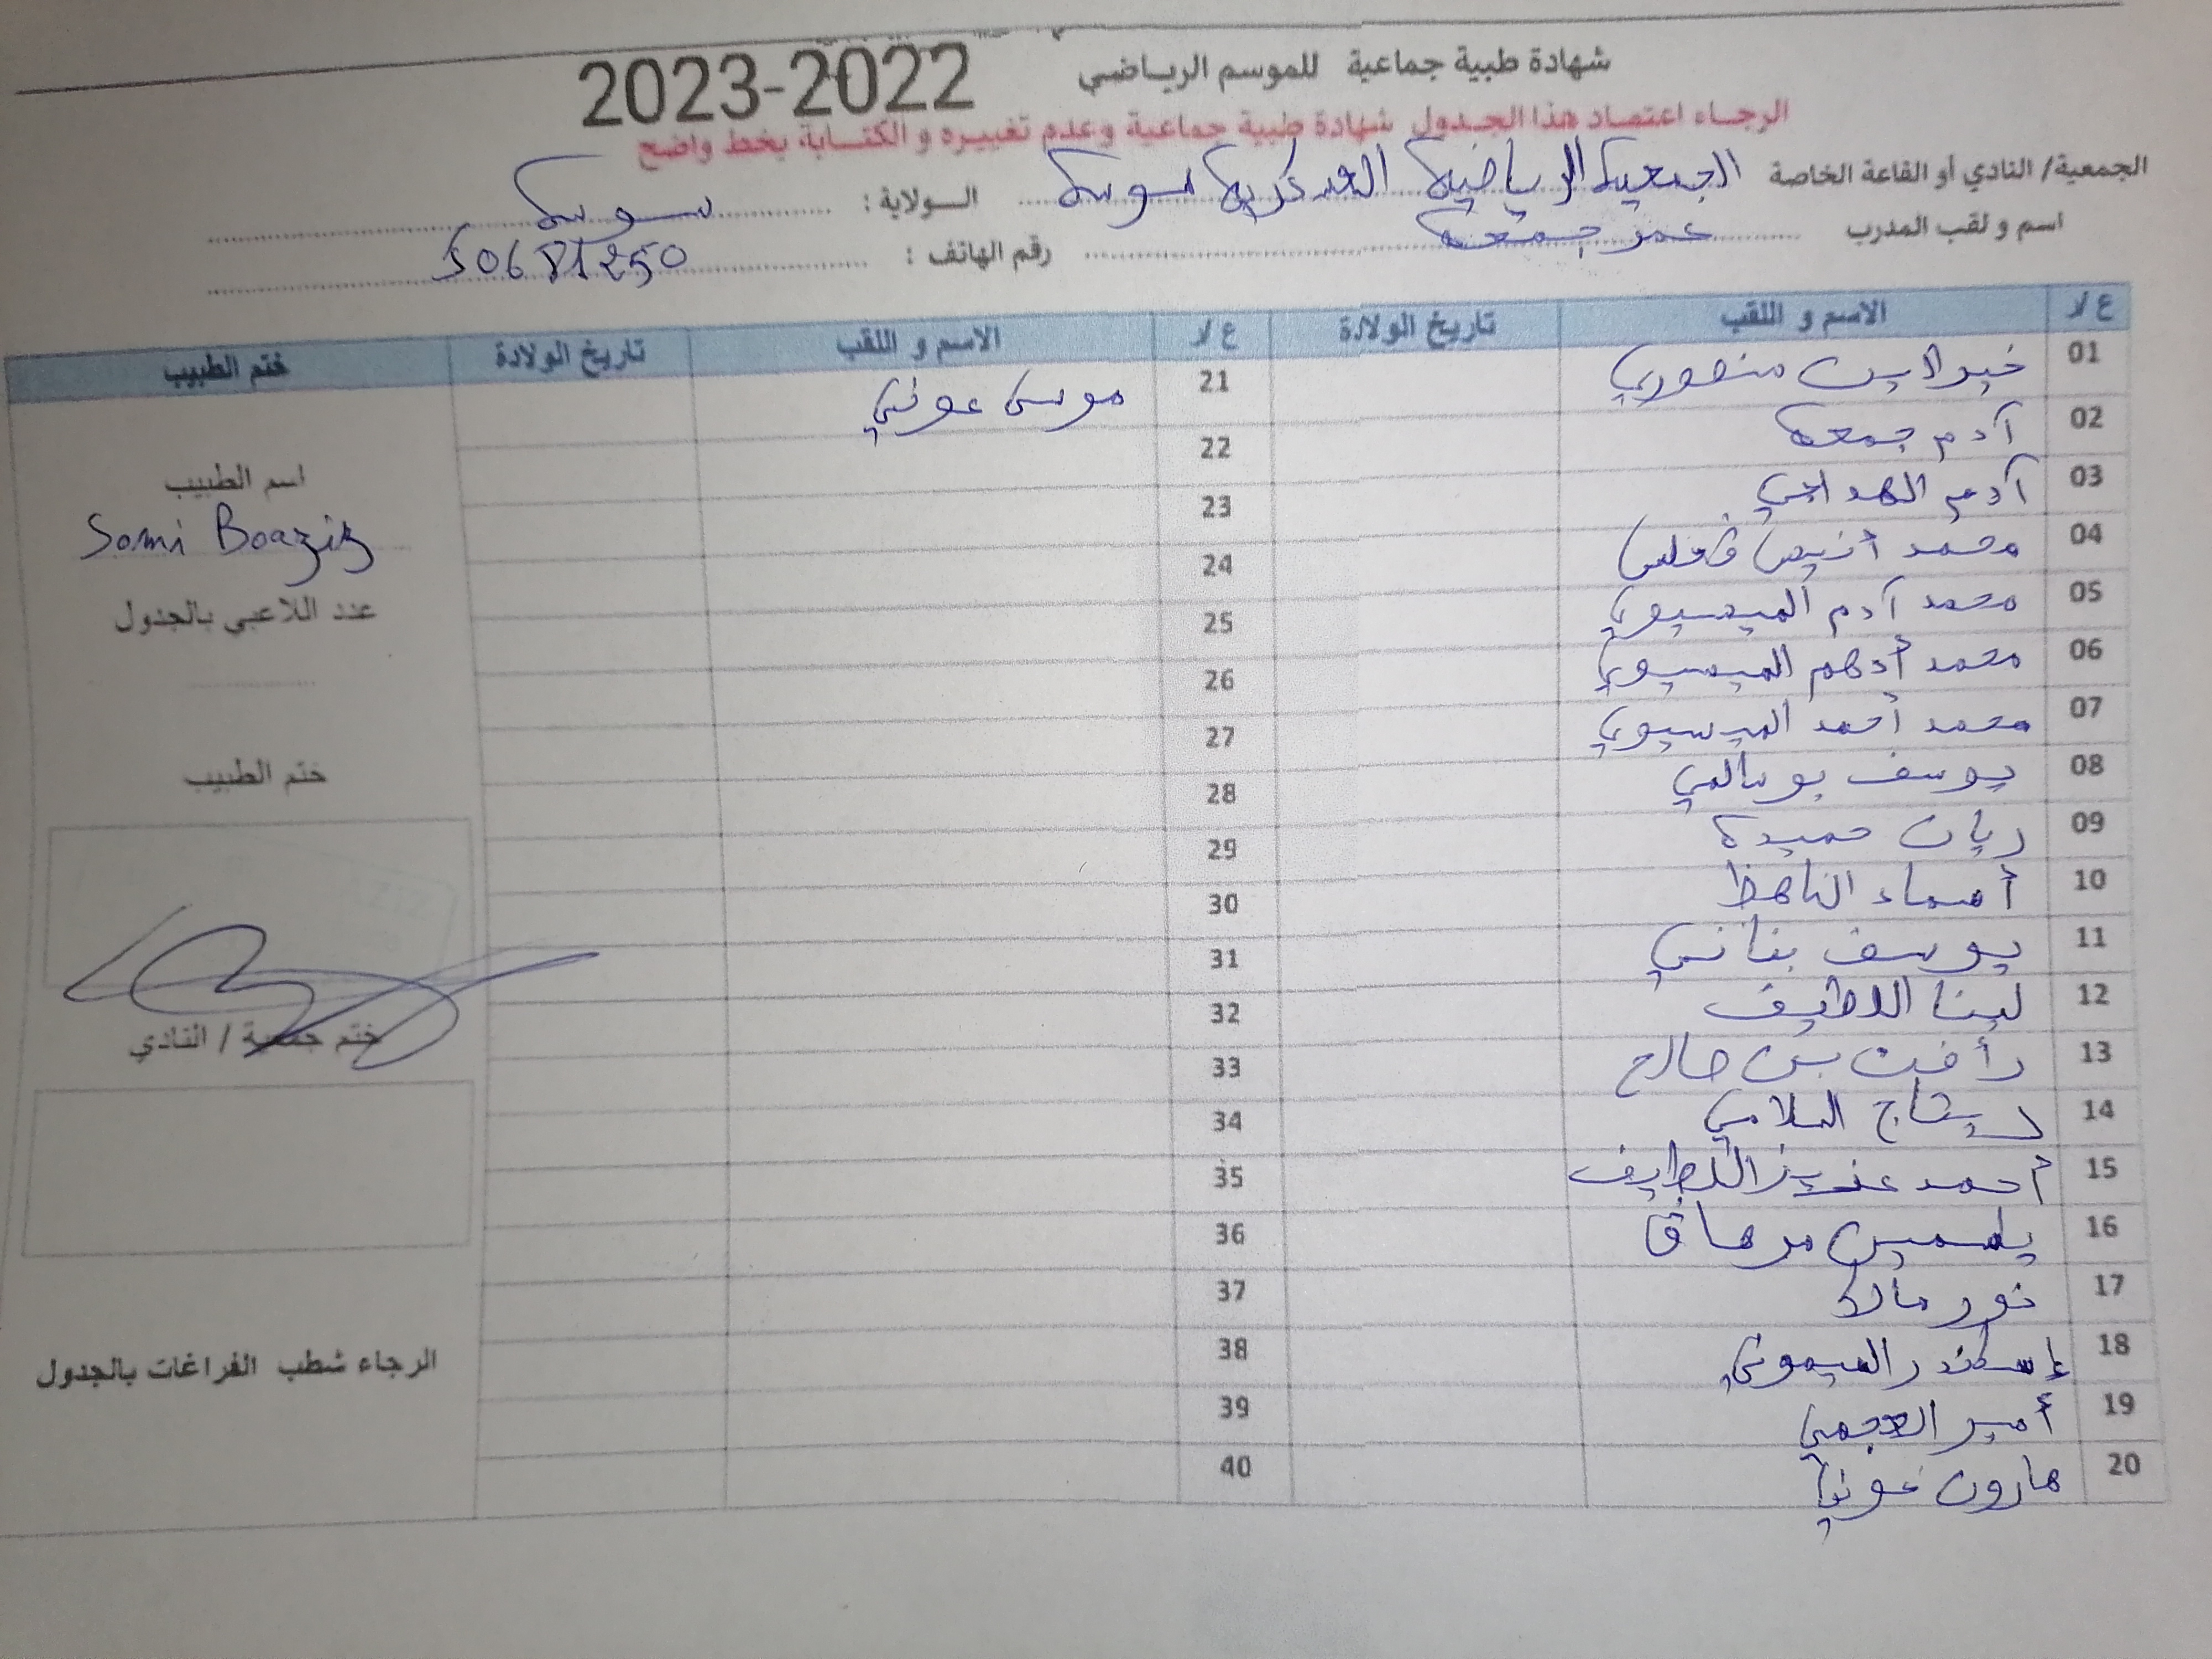 شهادة طبية جماعية للموسم الرياضي 2022-2023
الرجاء اعتماد هذا الجدول شهادة طبية جماعية وعدم تغييره و الكتابة بخط واضح
الجمعية/ النادي أو القاعة الخاصة الجمعية الرياضية العسكرية سوسة الولاية : سوسة
اسم و لقب المدرب عمر جمعة رقم الهاتف : 50681250
ع/ر الاسم و اللقب تاريخ الولادة ع/ر الاسم و اللقب تاريخ الولادة ختم الطبيب
01 منصوري 21 موسى عوني
02 آدم جمعة 22
03 آدم 23
04 محمد أنيس 24
05 محمد آدم الميسيوي 25
06 محمد أدهم الميسيوي 26
07 محمد أحمد الميسيوي 27
08 يوسف بوسالمي 28
09 ريان حميدة 29
10 أسماء 30
11 يوسف بناني 31
12 لينا اللطيف 32
13 رأفت بن صالح 33
14 ريتاج السلامي 34
15 أحمد عزيز اللطيف 35
16 ياسمين مرصاق 36
17 نور مالك 37
18 إسكندر الميموني 38
19 أمير العجمي 39
20 هارون عوني 40
اسم الطبيب
Sami Boaziz
عدد اللاعبي بالجدول
ختم الطبيب
ختم جمعية / النادي
الرجاء شطب الفراغات بالجدول